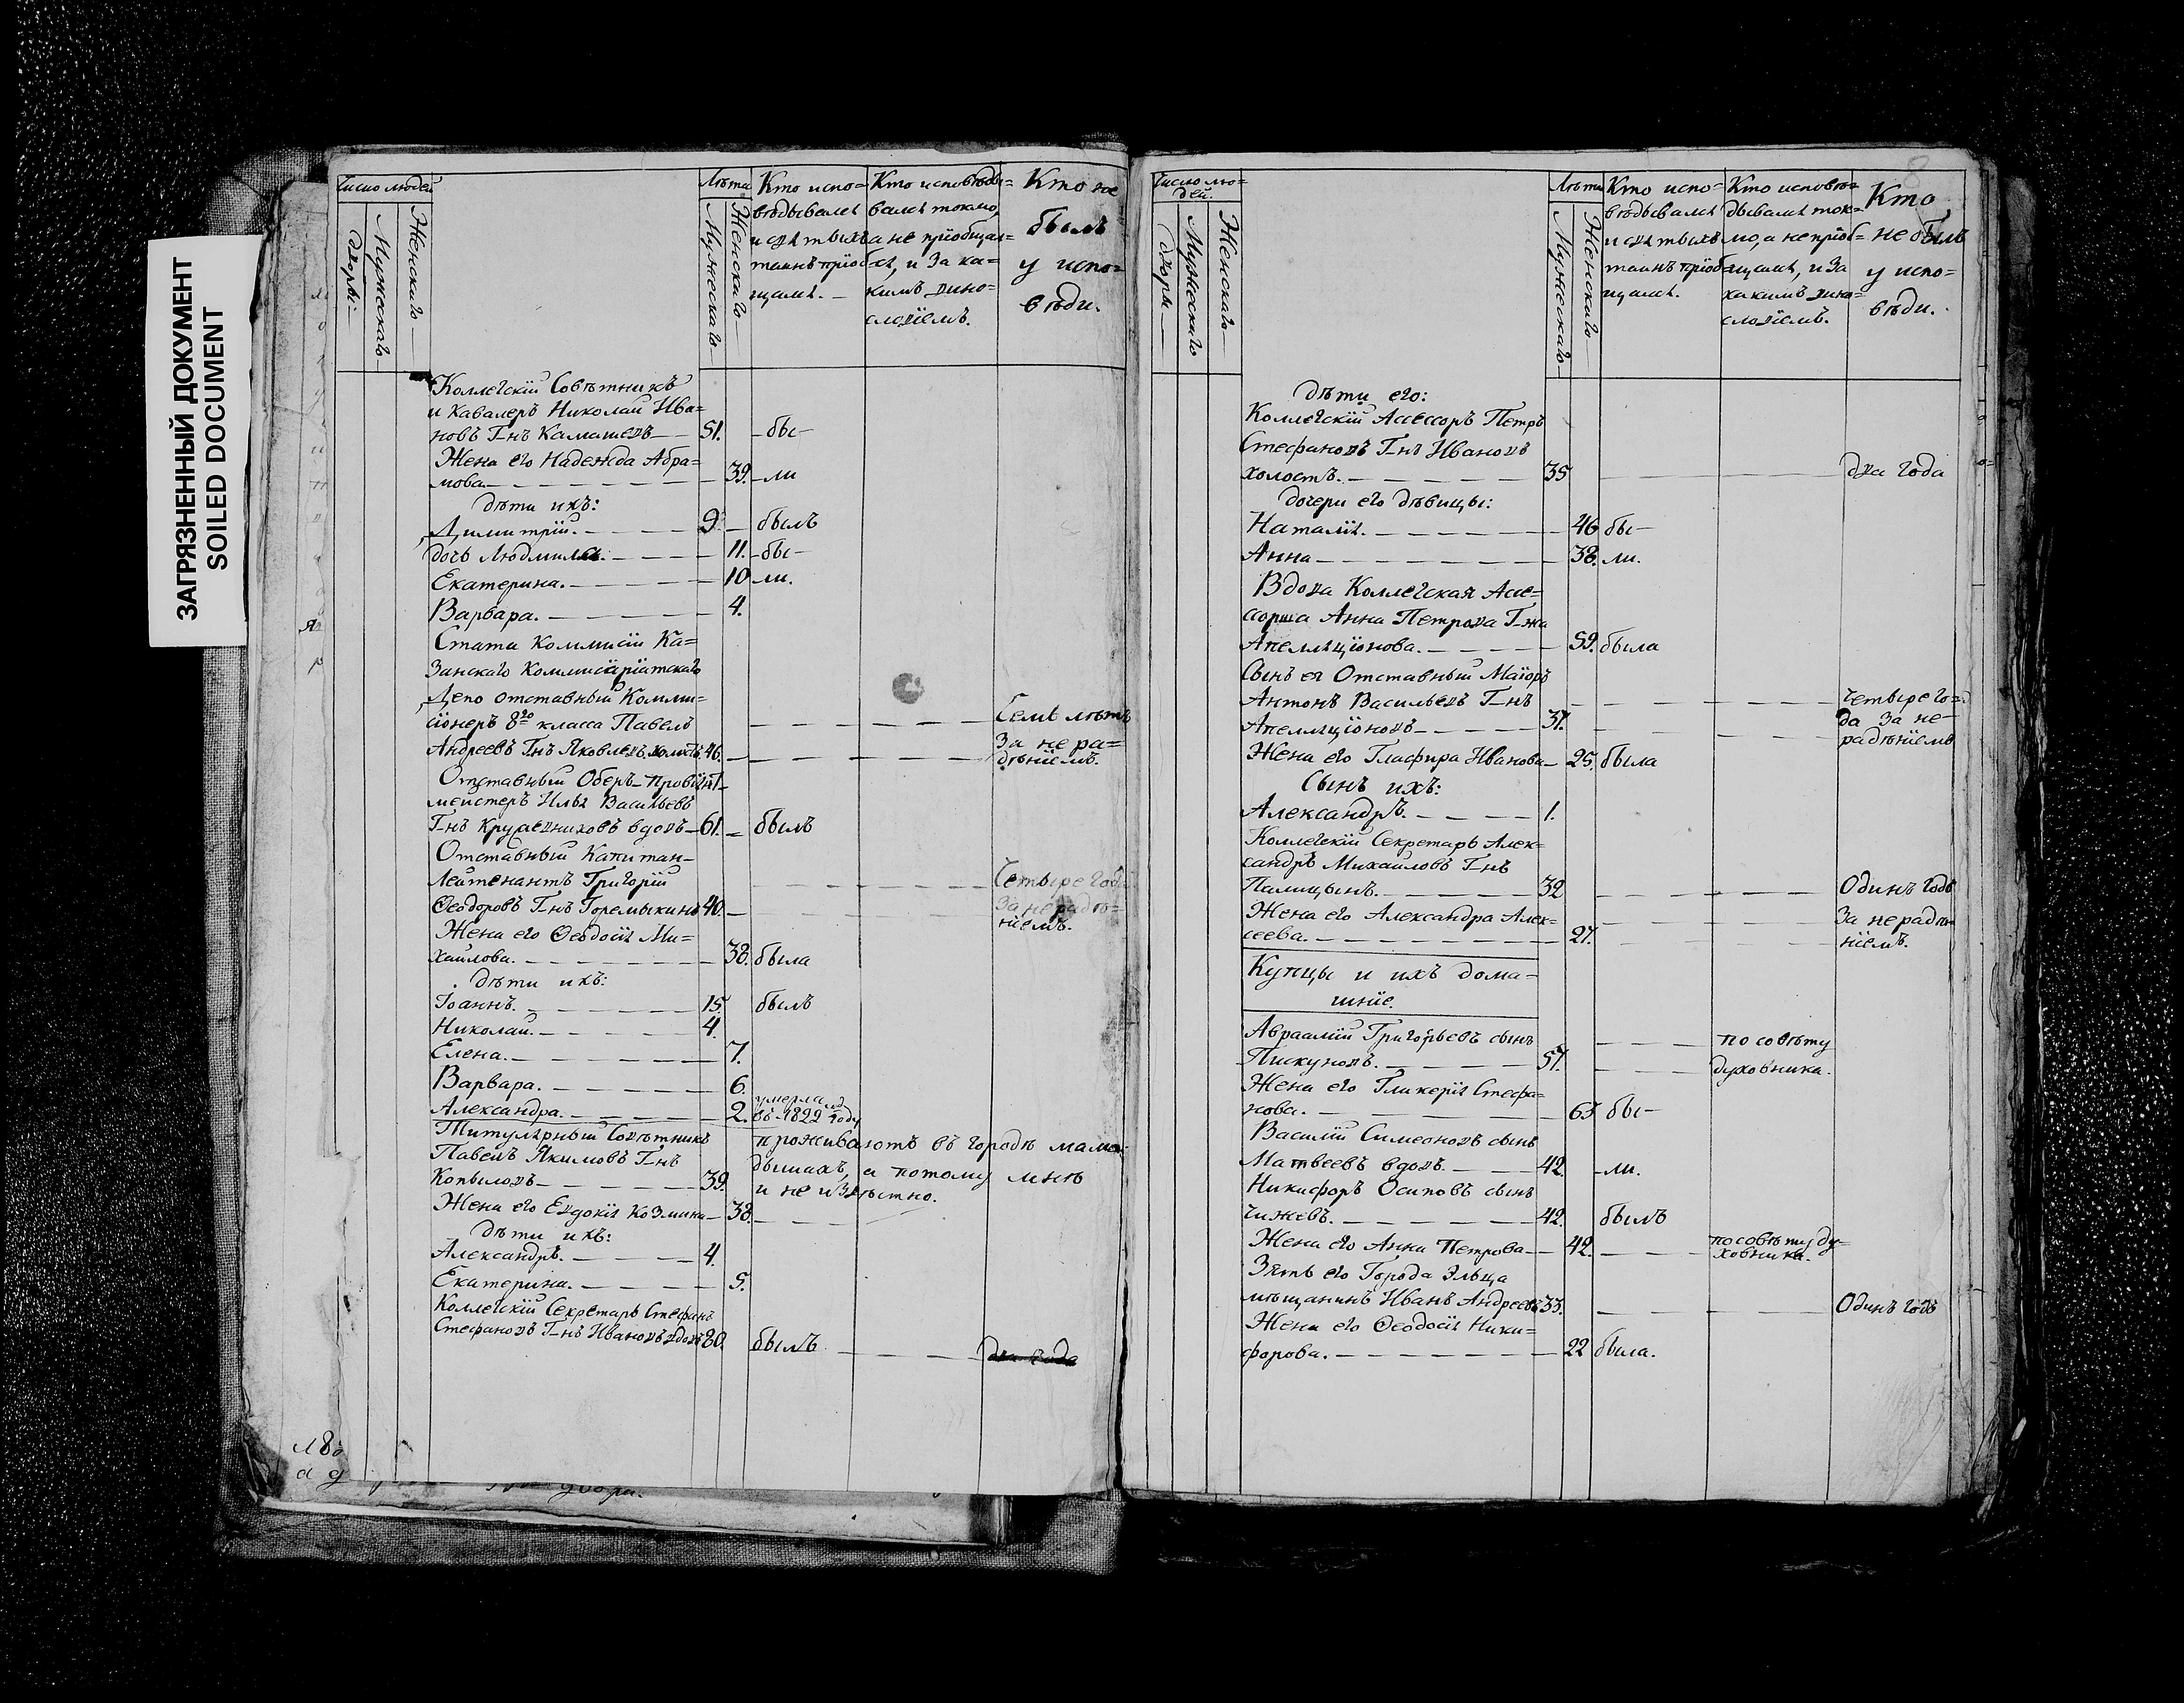 ЗАГРЯЗНЕННЫЙ ДОКУМЕНТ
SOILED DOCUMENT
Число людей
Дворы
Мужескаго
Женскаго
Лѣта
Мужескаго
Женскаго
Кто испо=
вѣдывался
и святыхъ
таинъ пріоб
щался.
Кто исповѣды=
вался токмо,
а не пріобщал=
ся, и за ка=
кимъ вино=
словіемъ.
Кто не
былъ
у испо=
вѣди.
Коллегскій Совѣтникъ
и Кавалеръ Николай Ива=
новъ Г-нъ Камашевъ 51. бы-
Жена его Надежда Абра=
мова 39. ли
дѣти ихъ:
Димитрій. 9. былъ
дочь Людмила. 11. бы-
Екатерина. 10 ли.
Варвара. 4.
Стата Коммисіи Ка=
занскаго Коммисаріатскаго
Депо отставный Комми=
сіонеръ 8го класса Павелъ Семь лѣтъ
Андреевъ Г-нъ Яковлевъ холостъ 46. за нера=
дѣніемъ.
Отставный Оберъ-Провіянт-
мейстеръ Илья Васильевъ
Г-нъ вдовъ 61. былъ
Отставный Капитан-
Лейтенантъ Григорій Четыре года
Ѳеодоровъ Г-нъ Горемыкинъ 40. за нерадѣ=
ніемъ.
Жена его Ѳеодосія Ми=
хайлова. 38. была
дѣти ихъ:
Іоаннъ. 15. былъ
Николай. 4.
Елена. 7.
Варвара. 6.
Александра. 2. умерла въ 1822 году
Титулярный Совѣтникъ проживаютъ въ городѣ Мама=
Павелъ Якимовъ Г-нъ дышахъ, а потому мнѣ
Копыловъ 39. и не извѣстно.
Жена его Евдокія Козмина 38.
дѣти ихъ:
Александръ. 4.
Екатерина. 5.
Коллегскій Секретарь Стефанъ
Стефановъ Г-нъ Ивановъ вдовъ 80. былъ два года
Число лю=
дей.
Дворы
Мужескаго
Женскаго
Лѣта
Мужескаго
Женскаго
Кто испо=
вѣдывался
и святыхъ
таинъ пріоб
щался.
Кто исповѣ=
дывался ток=
мо, а не пріоб=
щался, и за
какимъ вино=
словіемъ.
Кто
не былъ
у испо=
вѣди.
дѣти его:
Коллегскій Ассессоръ Петръ
Стефановъ Г-нъ Ивановъ
холостъ. 35 два года
дочери его дѣвицы:
Наталія. 46 бы-
Анна 38. ли.
Вдова Коллегская Ассе=
сорша Анна Петрова Г-жа
Апелляціонова. 59. была
Сынъ ея Отставный Маіоръ
Антонъ Васильевъ Г-нъ Четыре го=
Апелляціоновъ 37. да за не=
радѣніемъ
Жена его Глафира Иванова 25. была
Сынъ ихъ:
Александръ. 1.
Коллегскій Секретарь Алек=
сандръ Михайловъ Г-нъ
Палицынъ. 32 Одинъ годъ
Жена его Александра Алек= за нерадѣ=
сеева. 27. ніемъ.
Купцы и ихъ дома=
шніе.
Авраамій Григорьевъ сынъ по совѣту
Пискуновъ. 57. духовника.
Жена его Гликерія Стефа=
нова. 63 бы-
Василій Симеоновъ сынъ
Матвеевъ вдовъ. 42. ли.
Никифоръ Осиповъ сынъ
Чижевъ. 42. былъ
Жена его Анна Петрова 42. по совѣту ду=
ховника.
Зять его Города Эльца
мѣщанинъ Иванъ Андреевъ 33. Одинъ годъ
Жена его Ѳеодосія Ники=
форова. 22 была.